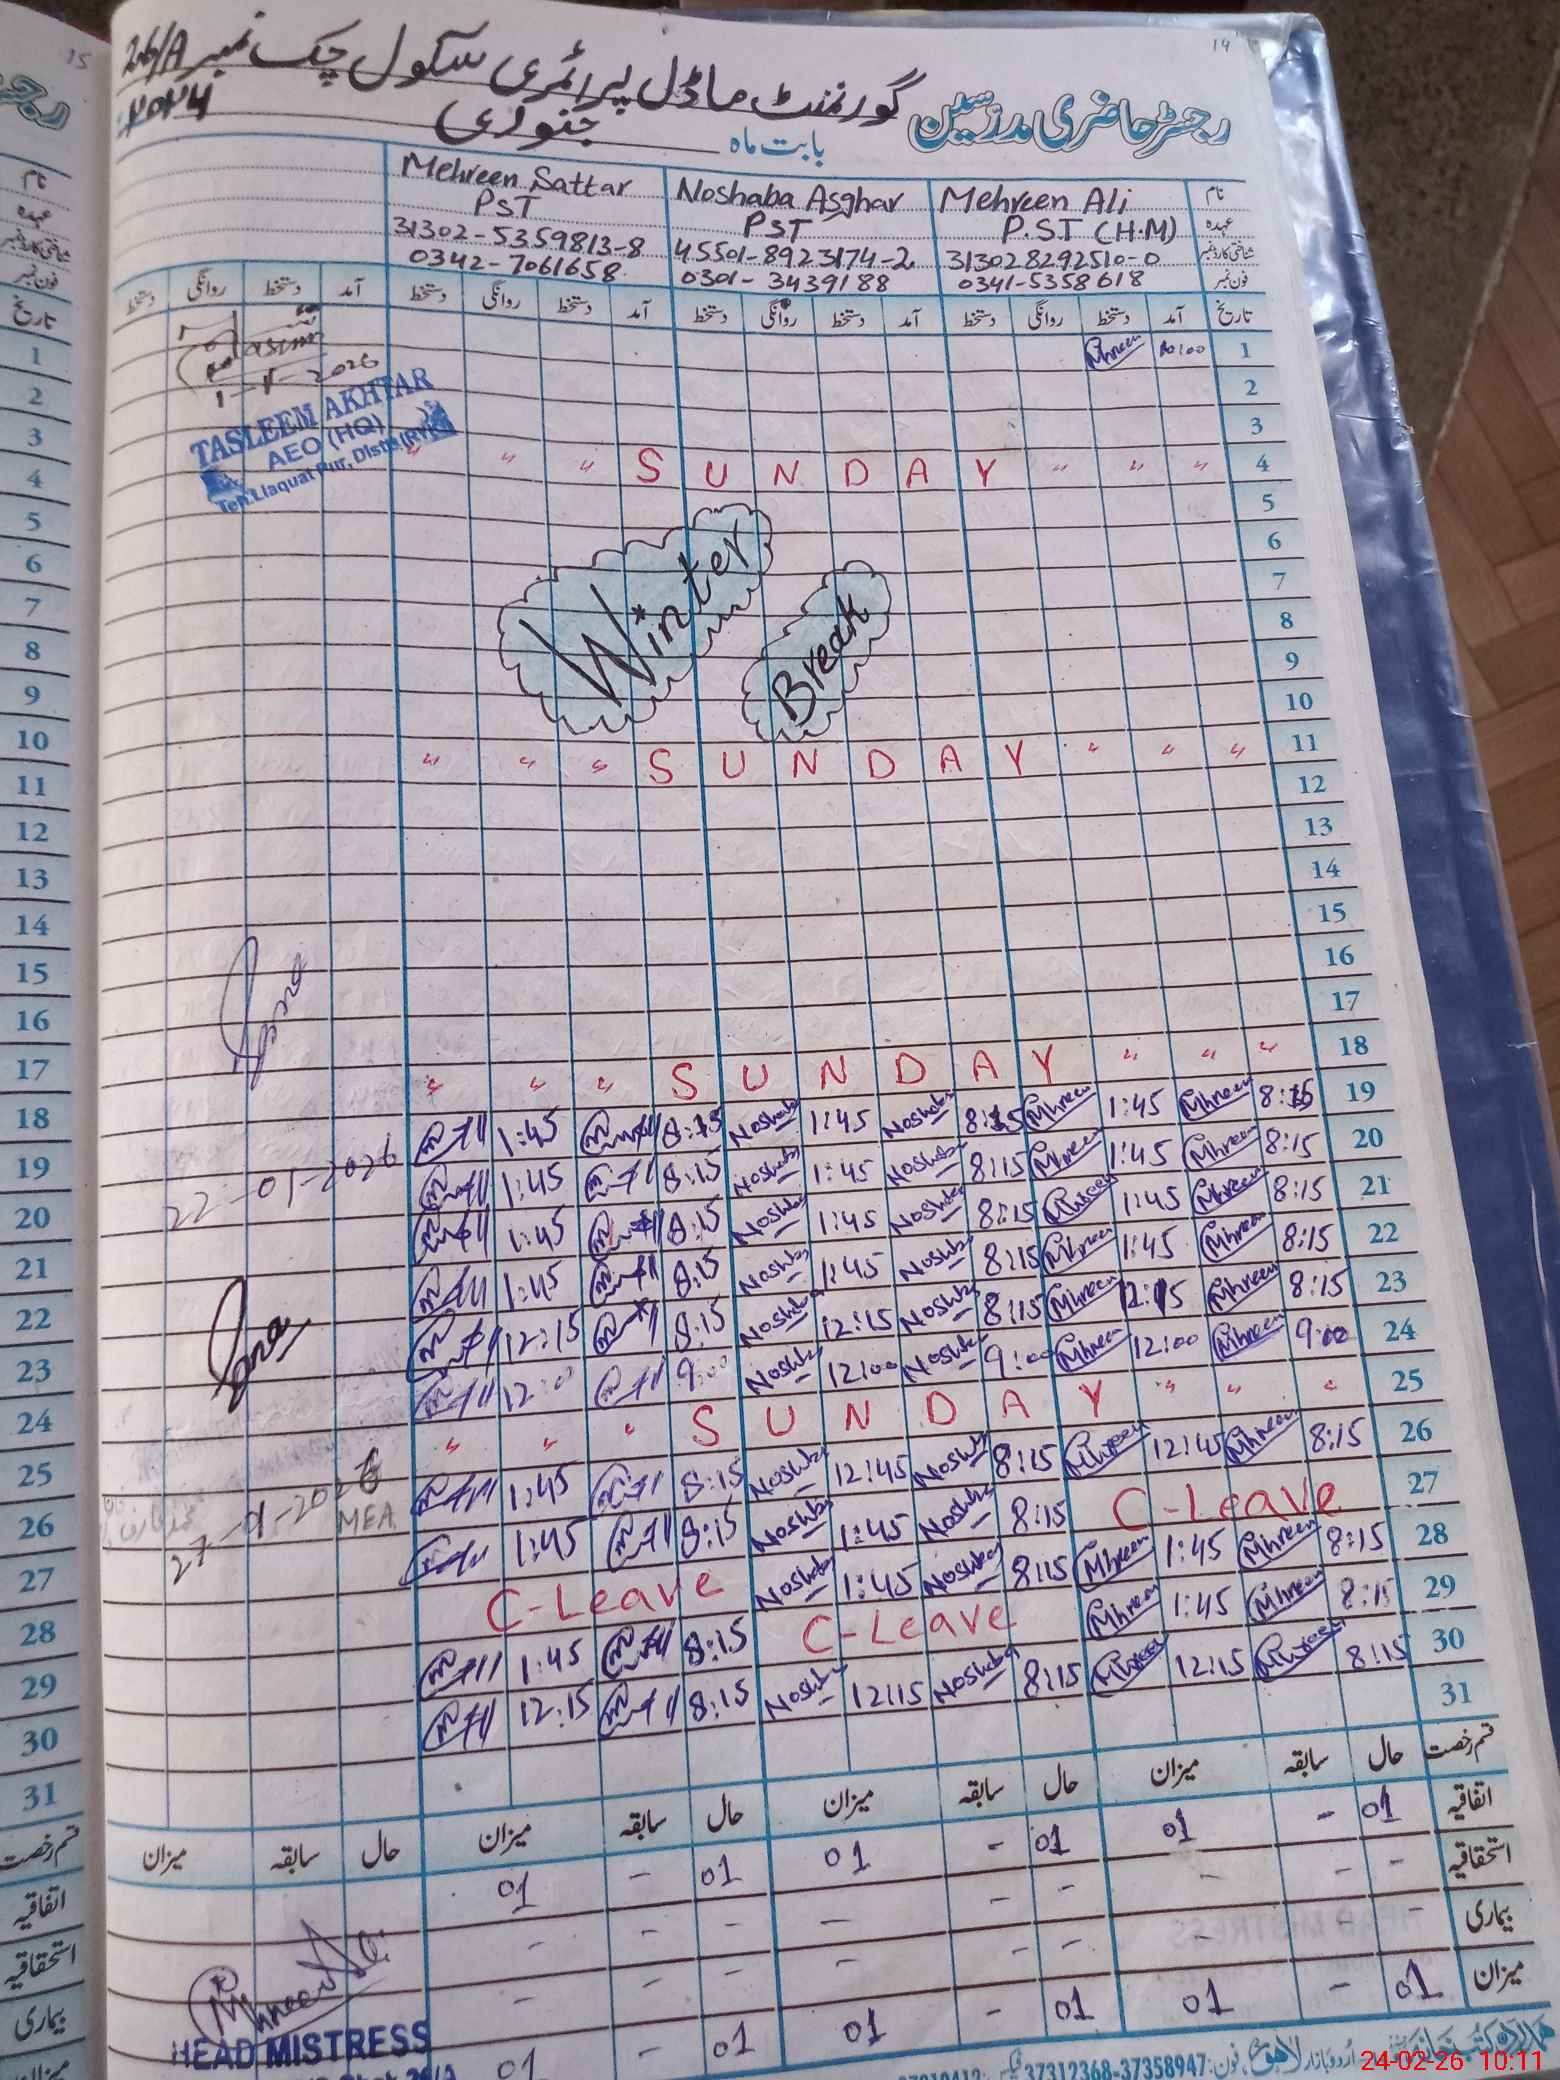 14
رجسٹر حاضری مدرسین گورنمنٹ ماڈل پرائمری سکول چک نمبر 206/A
بابت ماہ جنوری ۲۰۲۶
نام Mehreen Ali Noshaba Asghar Mehreen Sattar
عہدہ P.ST (H.M) PST PST
شناختی کارڈ نمبر 313028292510-0 45501-8923174-2 31302-5359813-8
فون نمبر 0341-5358618 0301-3439188 0342-7061658
تاریخ آمد دستخط روانگی دستخط آمد دستخط روانگی دستخط آمد دستخط روانگی دستخط آمد دستخط روانگی دستخط
1 10:00 Mhreen
1-1-2026
TASLEEM AKHTAR
AEO (HQ)
Teh. Liaquat Pur, Distt (RYK)
2
3
4 " " " S U N D A Y " " "
5
6
7
8
9
10
Winter
Break
11 " " " S U N D A Y " " "
12
13
14
15
16
17
18 " " " S U N D A Y " " "
19 8:15 Mhreen 1:45 Mhreen 8:15 Noshaba 1:45 Noshaba 8:15 1:45
20 8:15 Mhreen 1:45 Mhreen 8:15 Noshaba 1:45 Noshaba 8:15 1:45
22-01-2026
21 8:15 Mhreen 1:45 Mhreen 8:15 Noshaba 1:45 Noshaba 8:15 1:45
22 8:15 Mhreen 1:45 Mhreen 8:15 Noshaba 1:45 Noshaba 8:15 1:45
23 8:15 Mhreen 12:15 Mhreen 8:15 Noshaba 12:15 Noshaba 8:15 12:15
24 9:00 Mhreen 12:00 Mhreen 9:00 Noshaba 12:00 Noshaba 9:00 12:00
25 " " " S U N D A Y " " "
26 8:15 Mhreen 12:45 Mhreen 8:15 Noshaba 12:45 Noshaba 8:15 1:45
27 C-Leave 8:15 Noshaba 1:45 Noshaba 8:15 1:45
27-01-2026
MEA
28 8:15 Mhreen 1:45 Mhreen 8:15 Noshaba 1:45 Noshaba C-Leave
29 8:15 Mhreen 1:45 Mhreen C-Leave 8:15 1:45
30 8:15 Mhreen 12:15 Mhreen 8:15 Noshaba 12:15 Noshaba 8:15 12:15
31
قسم رخصت حال سابقہ میزان حال سابقہ میزان حال سابقہ میزان حال سابقہ میزان
اتفاقیہ 01 - 01 01 - 01 01 - 01
استحقاقیہ - - - - - - - - -
بیماری - - - - - - - - -
میزان 01 - 01 01 - 01 01 - 01
Mhreen Ali
HEAD MISTRESS
اردو بازار لاہور فون: 37312368-37358947
15
نام
عہدہ
شناختی کارڈ نمبر
فون نمبر
تاریخ
1
2
3
4
5
6
7
8
9
10
11
12
13
14
15
16
17
18
19
20
21
22
23
24
25
26
27
28
29
30
31
قسم رخصت
اتفاقیہ
استحقاقیہ
بیماری
میزان
24-02-26 10:11